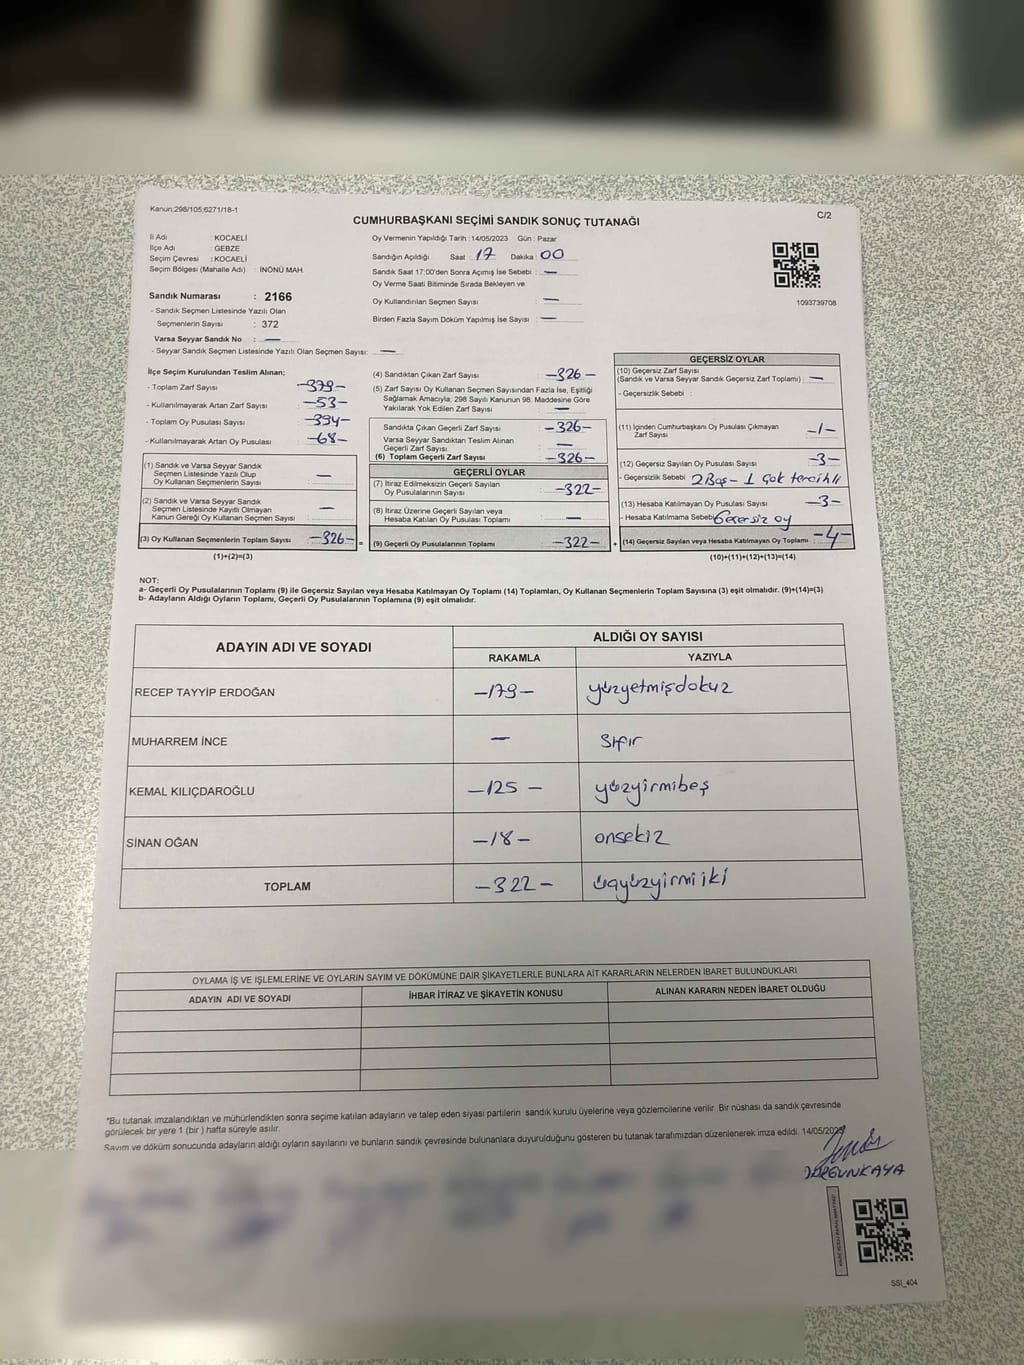 Kanun;298/105;6271/18-1
C/2
CUMHURBAŞKANI SEÇİMİ SANDIK SONUÇ TUTANAĞI
İl Adı : KOCAELİ
İlçe Adı : GEBZE
Seçim Çevresi : KOCAELİ
Seçim Bölgesi (Mahalle Adı) : İNÖNÜ MAH.
Sandık Numarası : 2166
- Sandık Seçmen Listesinde Yazılı Olan
Seçmenlerin Sayısı : 372
Varsa Seyyar Sandık No : —
- Seyyar Sandık Seçmen Listesinde Yazılı Olan Seçmen Sayısı: —
Oy Vermenin Yapıldığı Tarih : 14/05/2023 Gün : Pazar
Sandığın Açıldığı Saat : 17 Dakika : 00
Sandık Saat 17:00'den Sonra Açılmış İse Sebebi : —
Oy Verme Saati Bitiminde Sırada Bekleyen ve
Oy Kullandırılan Seçmen Sayısı : —
Birden Fazla Sayım Döküm Yapılmış İse Sayısı : —
1093739708
İlçe Seçim Kurulundan Teslim Alınan;
- Toplam Zarf Sayısı -379-
- Kullanılmayarak Artan Zarf Sayısı -53-
- Toplam Oy Pusulası Sayısı -394-
- Kullanılmayarak Artan Oy Pusulası -68-
(1) Sandık ve Varsa Seyyar Sandık
Seçmen Listesinde Yazılı Olup
Oy Kullanan Seçmenlerin Sayısı : —
(2) Sandık ve Varsa Seyyar Sandık
Seçmen Listesinde Kayıtlı Olmayan
Kanun Gereği Oy Kullanan Seçmen Sayısı : —
(3) Oy Kullanan Seçmenlerin Toplam Sayısı -326-
(1)+(2)=(3)
(4) Sandıktan Çıkan Zarf Sayısı -326-
(5) Zarf Sayısı Oy Kullanan Seçmen Sayısından Fazla İse, Eşitliği
Sağlamak Amacıyla; 298 Sayılı Kanunun 98. Maddesine Göre
Yakılarak Yok Edilen Zarf Sayısı : —
Sandıkta Çıkan Geçerli Zarf Sayısı -326-
Varsa Seyyar Sandıktan Teslim Alınan
Geçerli Zarf Sayısı —
(6) Toplam Geçerli Zarf Sayısı -326-
GEÇERLİ OYLAR
(7) İtiraz Edilmeksizin Geçerli Sayılan
Oy Pusulalarının Sayısı -322-
(8) İtiraz Üzerine Geçerli Sayılan veya
Hesaba Katılan Oy Pusulası Toplamı : —
= (9) Geçerli Oy Pusulalarının Toplamı -322-
GEÇERSİZ OYLAR
(10) Geçersiz Zarf Sayısı
(Sandık ve Varsa Seyyar Sandık Geçersiz Zarf Toplamı) : —
- Geçersizlik Sebebi :
(11) İçinden Cumhurbaşkanı Oy Pusulası Çıkmayan
Zarf Sayısı -1-
(12) Geçersiz Sayılan Oy Pusulası Sayısı -3-
- Geçersizlik Sebebi : 2 Boş - 1 Çok tercihli
(13) Hesaba Katılmayan Oy Pusulası Sayısı -3-
- Hesaba Katılmama Sebebi Geçersiz oy
+ (14) Geçersiz Sayılan veya Hesaba Katılmayan Oy Toplamı -4-
(10)+(11)+(12)+(13)=(14)
NOT:
a- Geçerli Oy Pusulalarının Toplamı (9) ile Geçersiz Sayılan veya Hesaba Katılmayan Oy Toplamı (14) Toplamları, Oy Kullanan Seçmenlerin Toplam Sayısına (3) eşit olmalıdır. (9)+(14)=(3)
b- Adayların Aldığı Oyların Toplamı, Geçerli Oy Pusulalarının Toplamına (9) eşit olmalıdır.
ADAYIN ADI VE SOYADI ALDIĞI OY SAYISI
RAKAMLA YAZIYLA
RECEP TAYYİP ERDOĞAN -179- yüzyetmişdokuz
MUHARREM İNCE — sıfır
KEMAL KILIÇDAROĞLU -125 - yüzyirmibeş
SİNAN OĞAN -18- onsekiz
TOPLAM -322- üçyüzyirmiiki
OYLAMA İŞ VE İŞLEMLERİNE VE OYLARIN SAYIM VE DÖKÜMÜNE DAİR ŞİKAYETLERLE BUNLARA AİT KARARLARIN NELERDEN İBARET BULUNDUKLARI
ADAYIN ADI VE SOYADI İHBAR İTİRAZ VE ŞİKAYETİN KONUSU ALINAN KARARIN NEDEN İBARET OLDUĞU
*Bu tutanak imzalandıktan ve mühürlendikten sonra seçime katılan adayların ve talep eden siyasi partilerin sandık kurulu üyelerine veya gözlemcilerine verilir. Bir nüshası da sandık çevresinde
görülecek bir yere 1 (bir ) hafta süreyle asılır.
Sayım ve döküm sonucunda adayların aldığı oyların sayılarını ve bunların sandık çevresinde bulunanlara duyurulduğunu gösteren bu tutanak tarafımızdan düzenlenerek imza edildi. 14/05/2023
SSİ_404